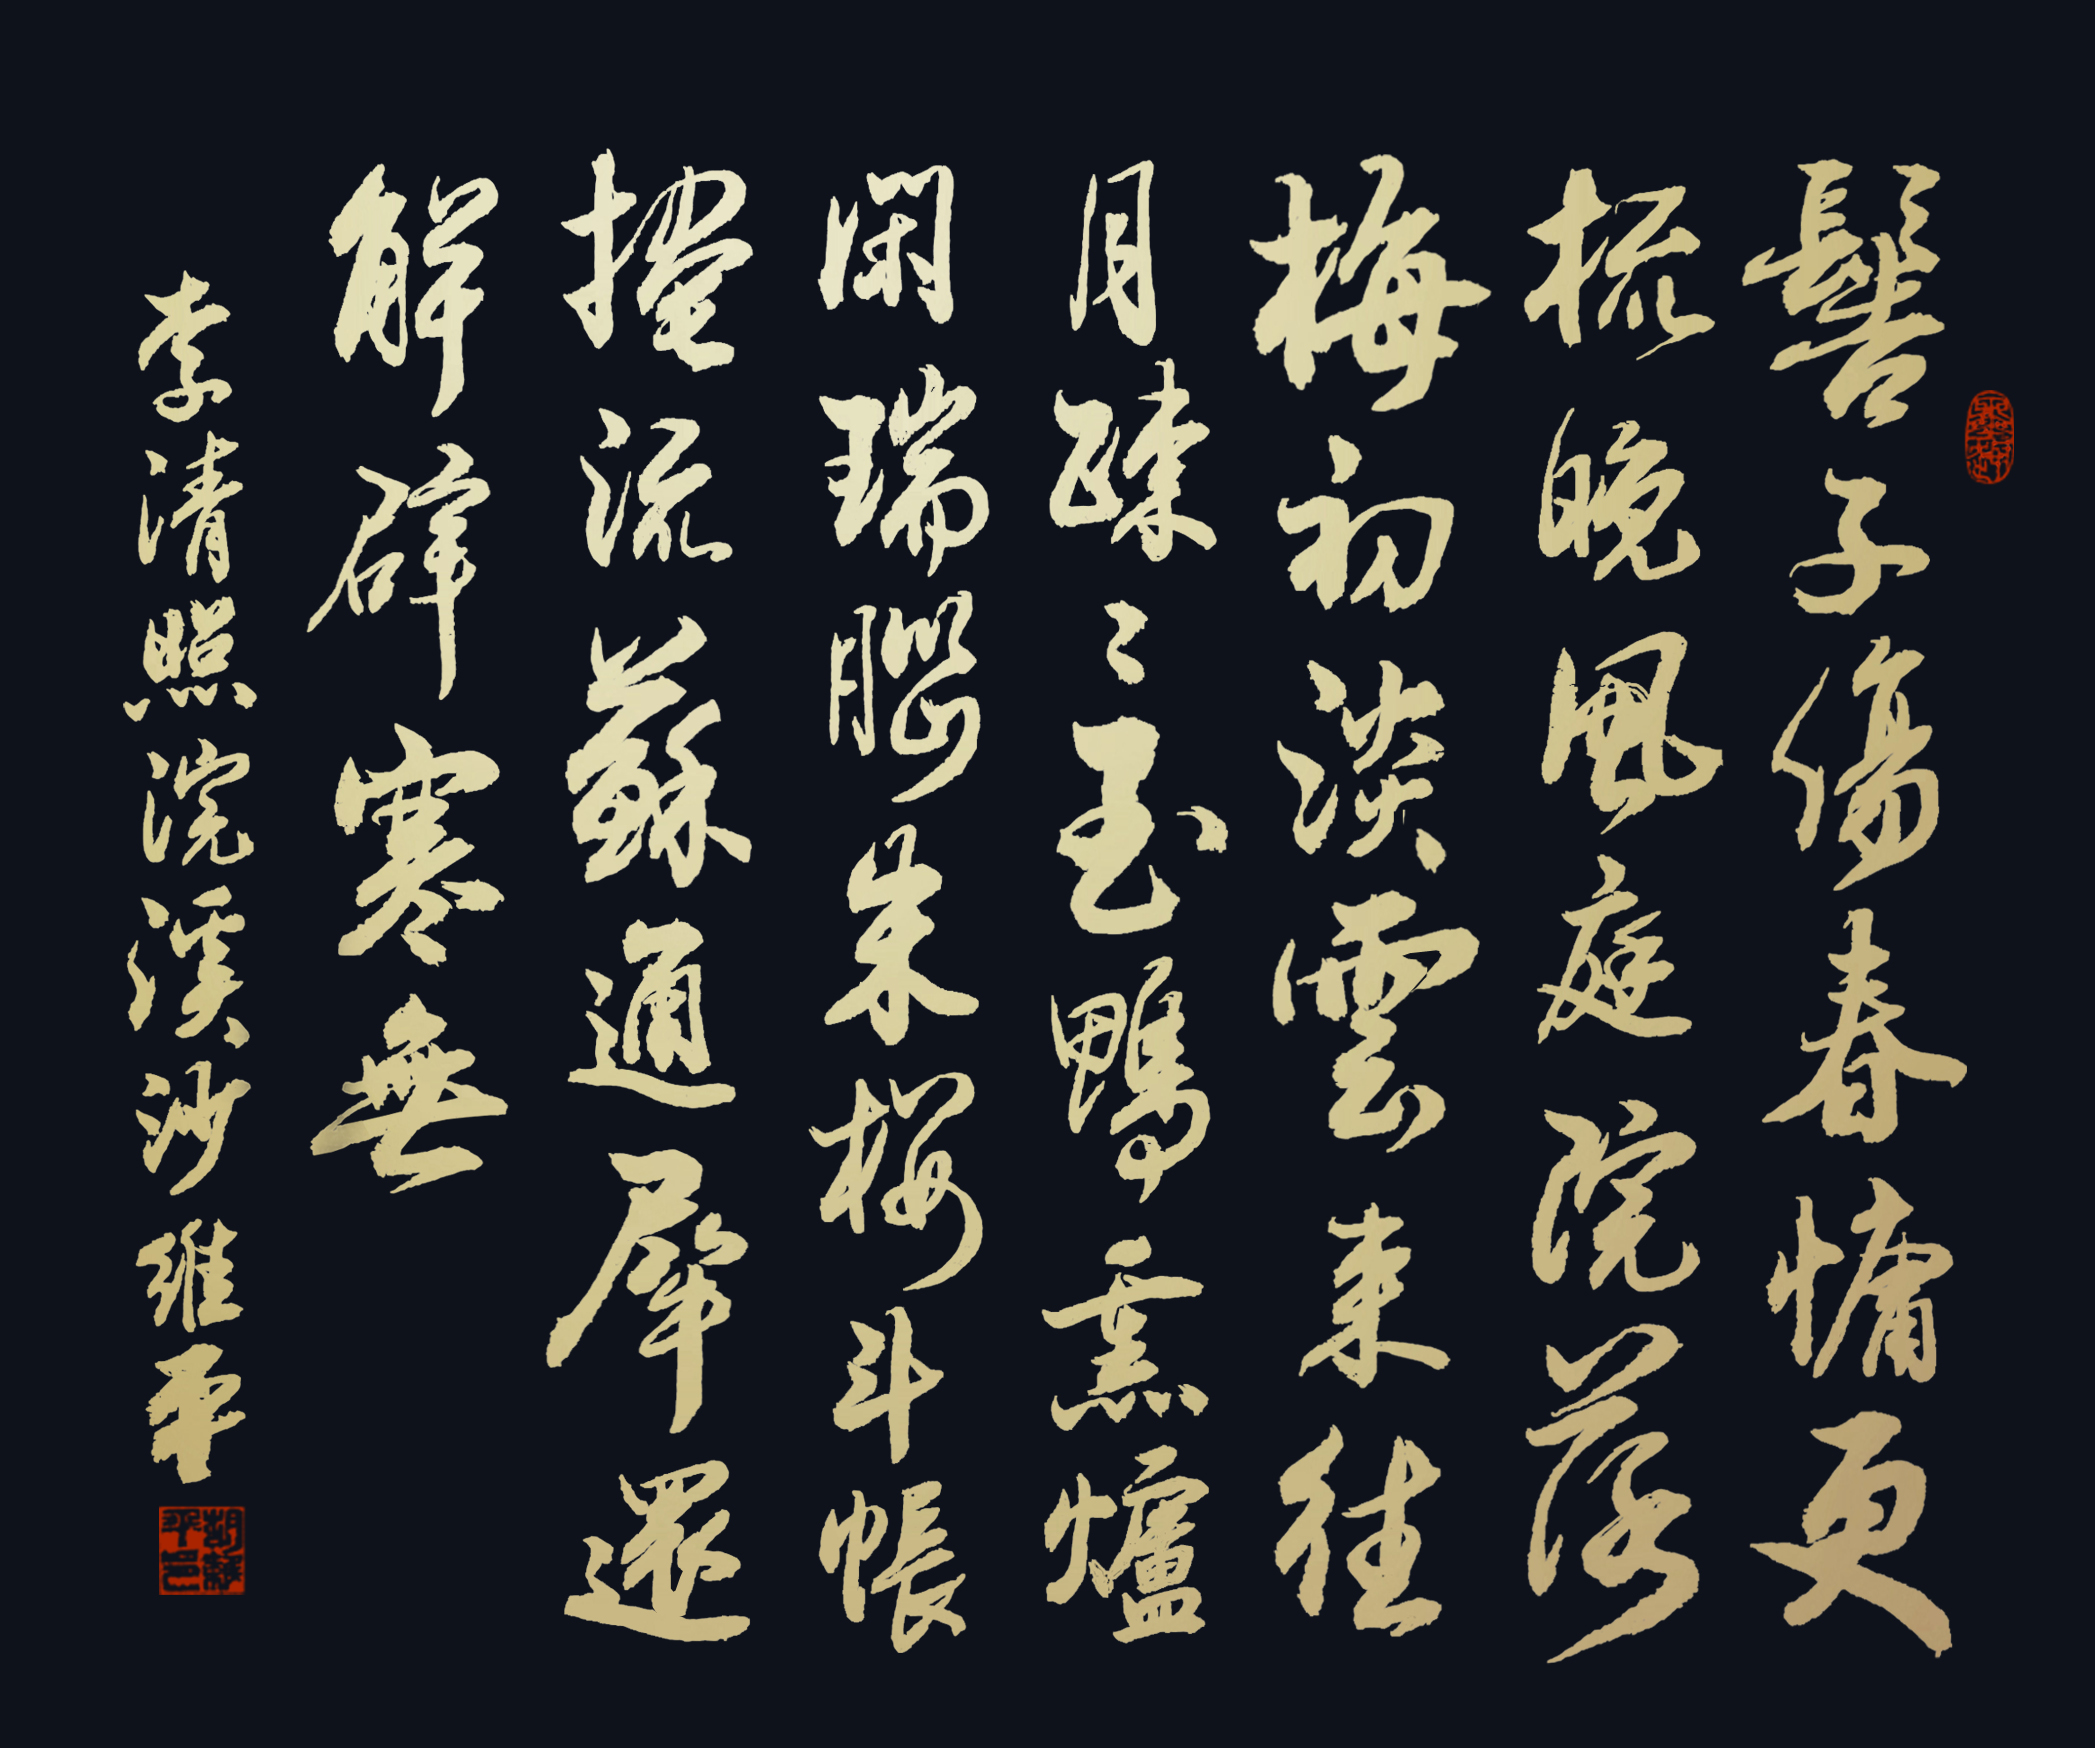 髻子傷春慵更
梳晚風庭院落
梅初淡雲來往
月疎〻玉鴨熏爐
閒瑞腦朱櫻斗帳
掩流蘇通犀還
解辟寒無
李清照浣溪沙